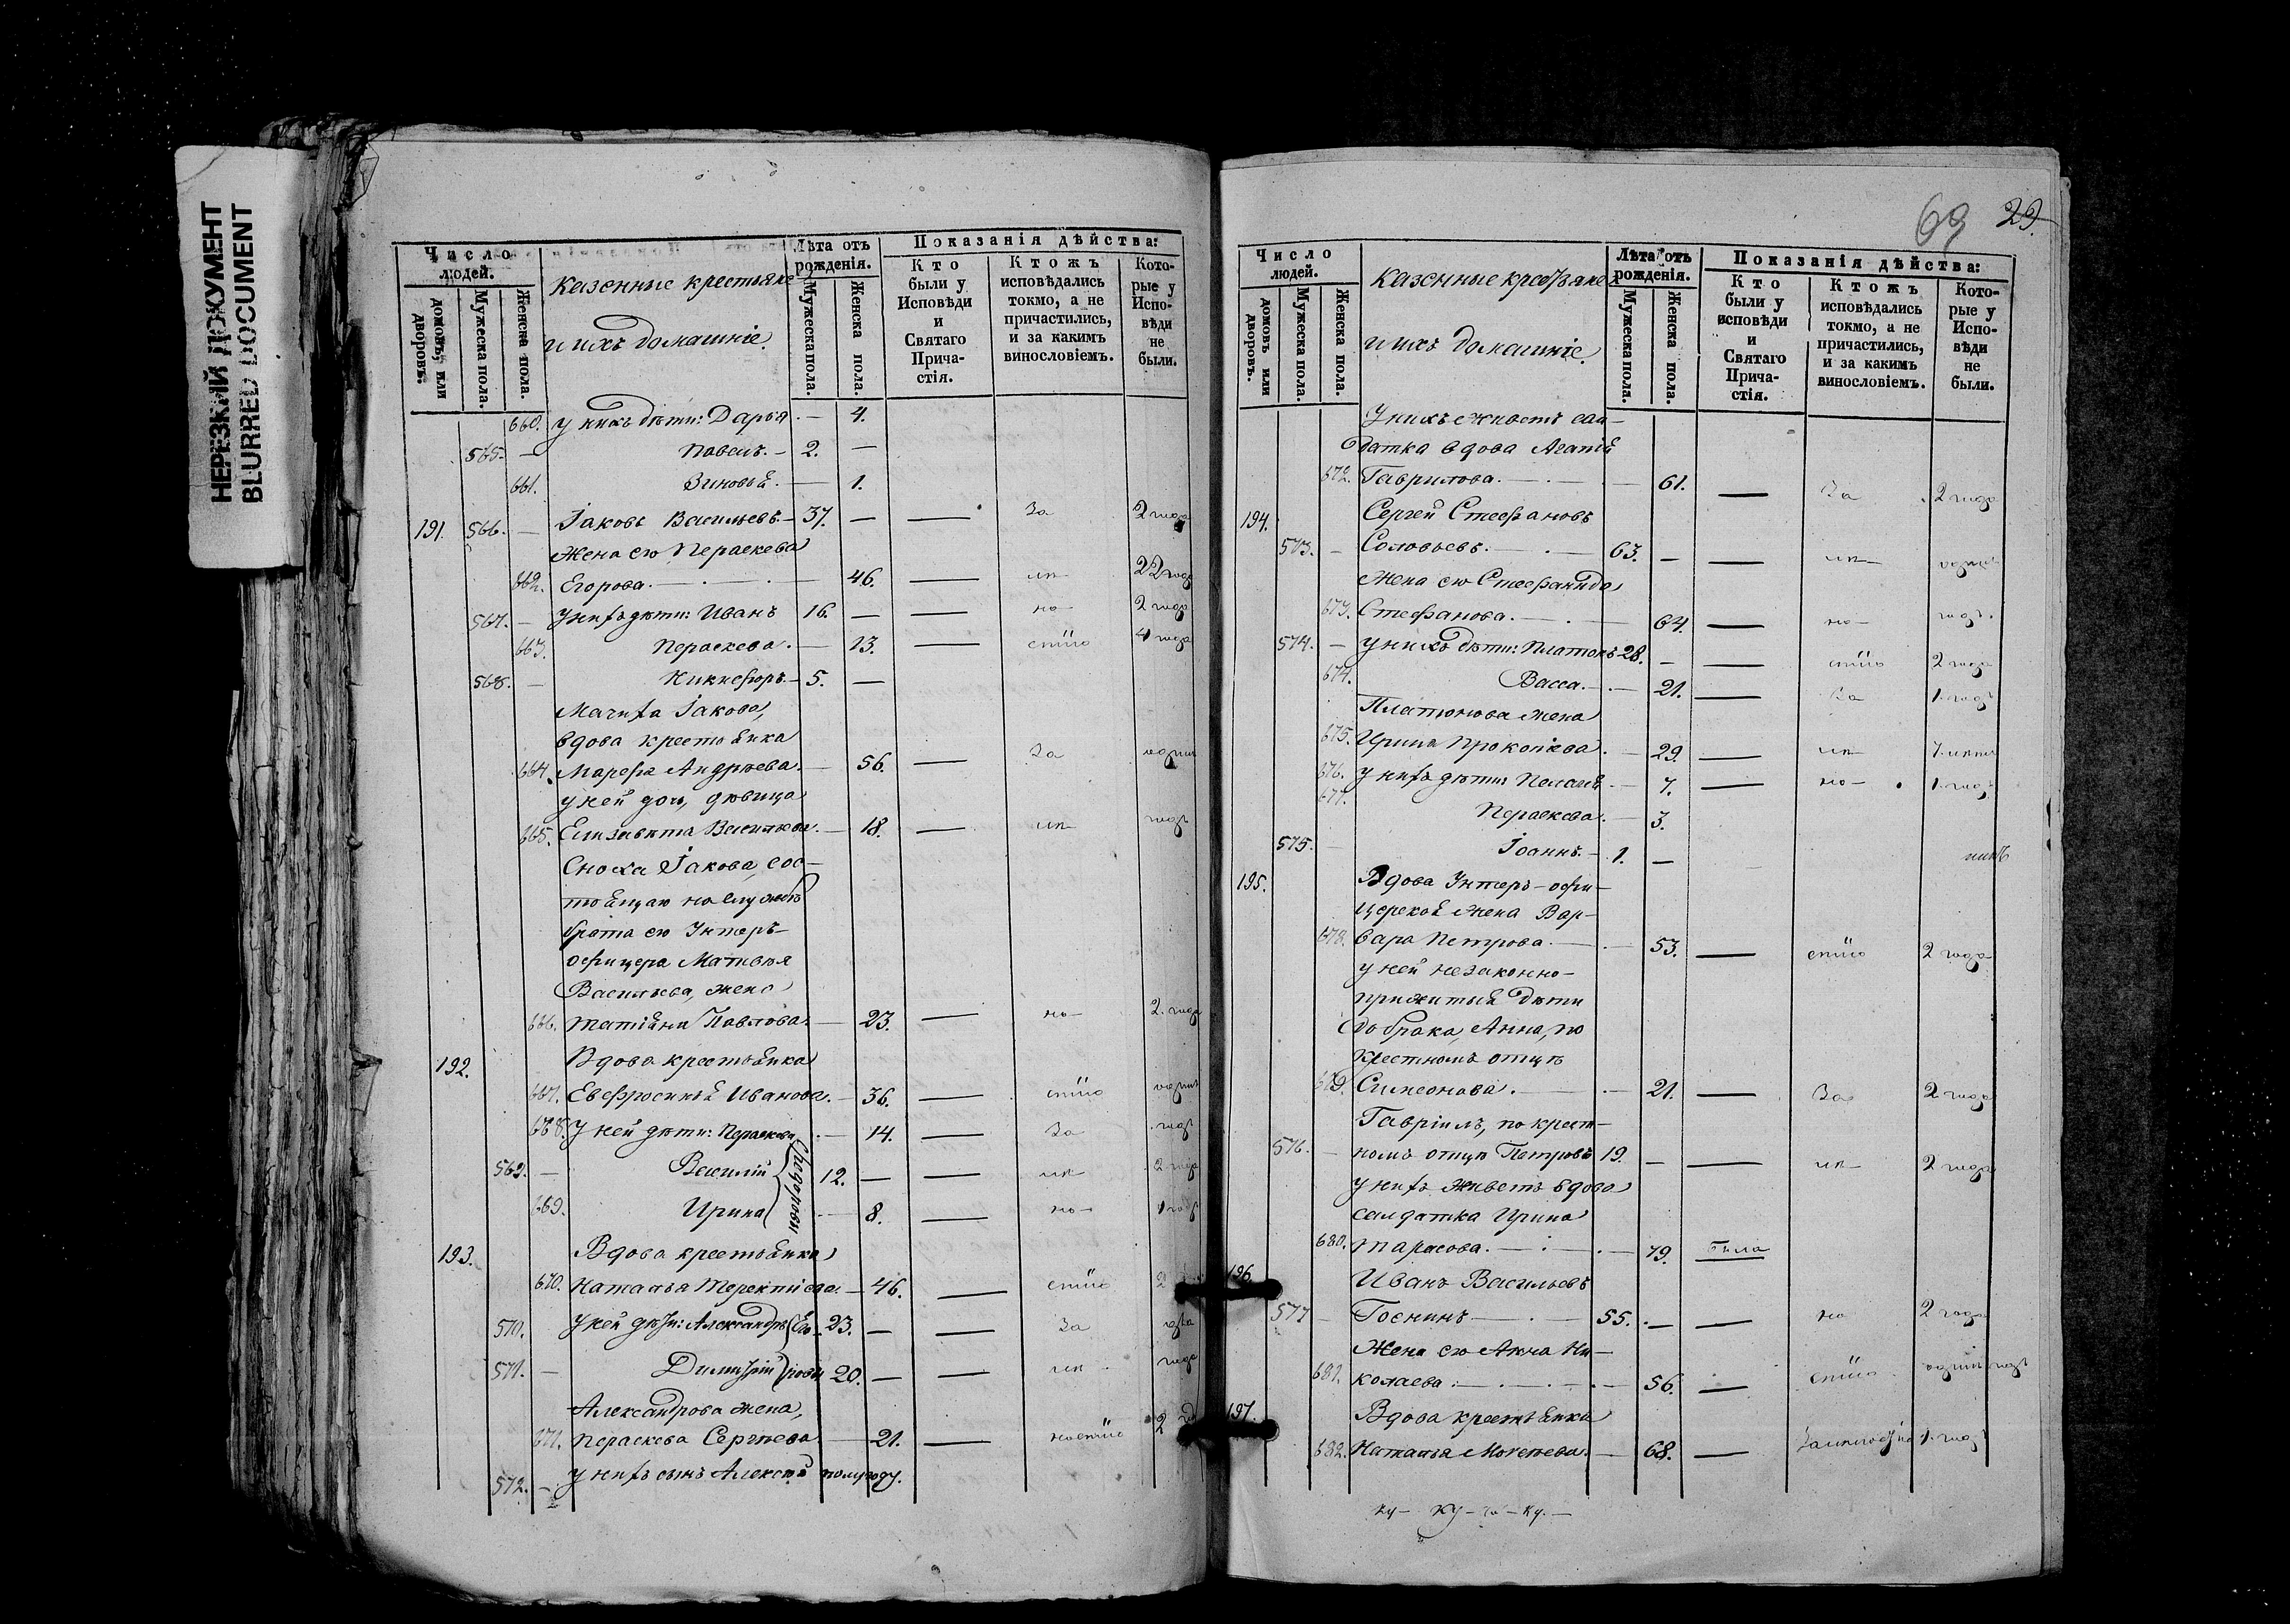 НЕРЕЗКИЙ ДОКУМЕНТ
BLURRED DOCUMENT
Число людей.
домовъ, или дворовъ.
Мужеска пола.
Женска пола.
Казенные крестьяне
и ихъ домашніе.
Лѣта отъ рожденія.
Мужеска пола.
Женска пола.
Показанія дѣйства:
Кто были у Исповѣди и Святаго Прича-стія.
Ктожъ исповѣдались токмо, а не причастились, и за какимъ винословіемъ.
Кото-рые у Испо-вѣди не были.
660. У нихъ дѣти: Дарья — 4.
565. — Павелъ. — 2. —
661. Зиновія. — 1.
191. 566. — Іаковъ Васильевъ. — 37. — — За 2 года
Жена его Параскева
662. Егорова. — 46. — 2 года
567. — У нихъ дѣти: Иванъ 16. — — но- 2 года
663. Параскева. — 13. — стію 4 года
568. — Никифоръ. — 5. —
Мачиха Іакова,
вдова крестьянка
664. Марфа Андреева. — 56. — За одинъ
у ней дочь, дѣвица
665. Елизавета Васильева. — 18. — годъ
Сноха Іакова, сос-
тоящаго на службѣ
брата его Унтеръ-
офицера Матвѣя
Васильева, жена
666. Татіана Павлова. — 23. — но- 2 года
192. Вдова крестьянка
667. Евфросинія Иванова. — 36. — стію одинъ
668. У ней дѣти: Параскева — 14. — За годъ
569. — Василій 12. — — 2 года
Ѳедоровы
669. Ирина — 8. — но- 1 годъ
193. Вдова крестьянка
670. Наталья Терентіева. — 46. — стію 2
570. У ней дѣти: Александръ Его- 23. — — За
571. — Димитрій ровы 20. — — года
Александрова жена,
671. Параскева Сергѣева. — 21. — ностію 2
572. — У нихъ сынъ Алексѣй полугоду.
69 29.
Число людей.
домовъ или дворовъ.
Мужеска пола.
Женска пола.
Казенные крестьяне
и ихъ домашніе.
Лѣта отъ рожденія.
Мужеска пола.
Женска пола.
Показанія дѣйства:
Кто были у исповѣди и Святаго Прича-стія.
Ктожъ исповѣдались токмо, а не причастились, и за какимъ винословіемъ.
Кото-рые у Испо-вѣди не были.
У нихъ живетъ сал-
датка вдова Агапія
672. Гаврилова. — 61. — За 2 года
194. Сергей Стефановъ
573. — Соловьевъ. — 63. — — одинъ
Жена его Стефанида
673. Стефанова. — 64. — но- годъ.
574. — У нихъ дѣти: Платонъ 28. — — стію 2 года
674. Васса. — 21. — За 1 годъ
Платонова жена
675. Ирина Прокопіева. — 29. —
676. У нихъ дѣти: Пелагія. — 7. — но- 1 годъ
677. Параскева. — 3.
575. — Іоаннъ. — 1. —
195. Вдова Унтеръ-офи-
церская жена Вар-
678. вара Петрова. — 53. — стію 2 года
у ней незаконно-
прижитыя дѣти
до брака, Анна, по
крестномъ отцѣ
679. Симеонова. — 21. — За 2 года
Гавріилъ, по крест-
576. — номъ отцѣ Петровъ 19. — — 2 года
У нихъ живетъ вдова
салдатка Ирина
680. Тарасова. — 79. Была
196. Иванъ Васильевъ
577 — Госнинъ — 55. — — но 2 года
Жена его Анна Ни-
681. колаева. — 56. — стію одинъ годъ
197. Вдова крестьянка
682. Наталья Мокеева. — 68. — 1 годъ